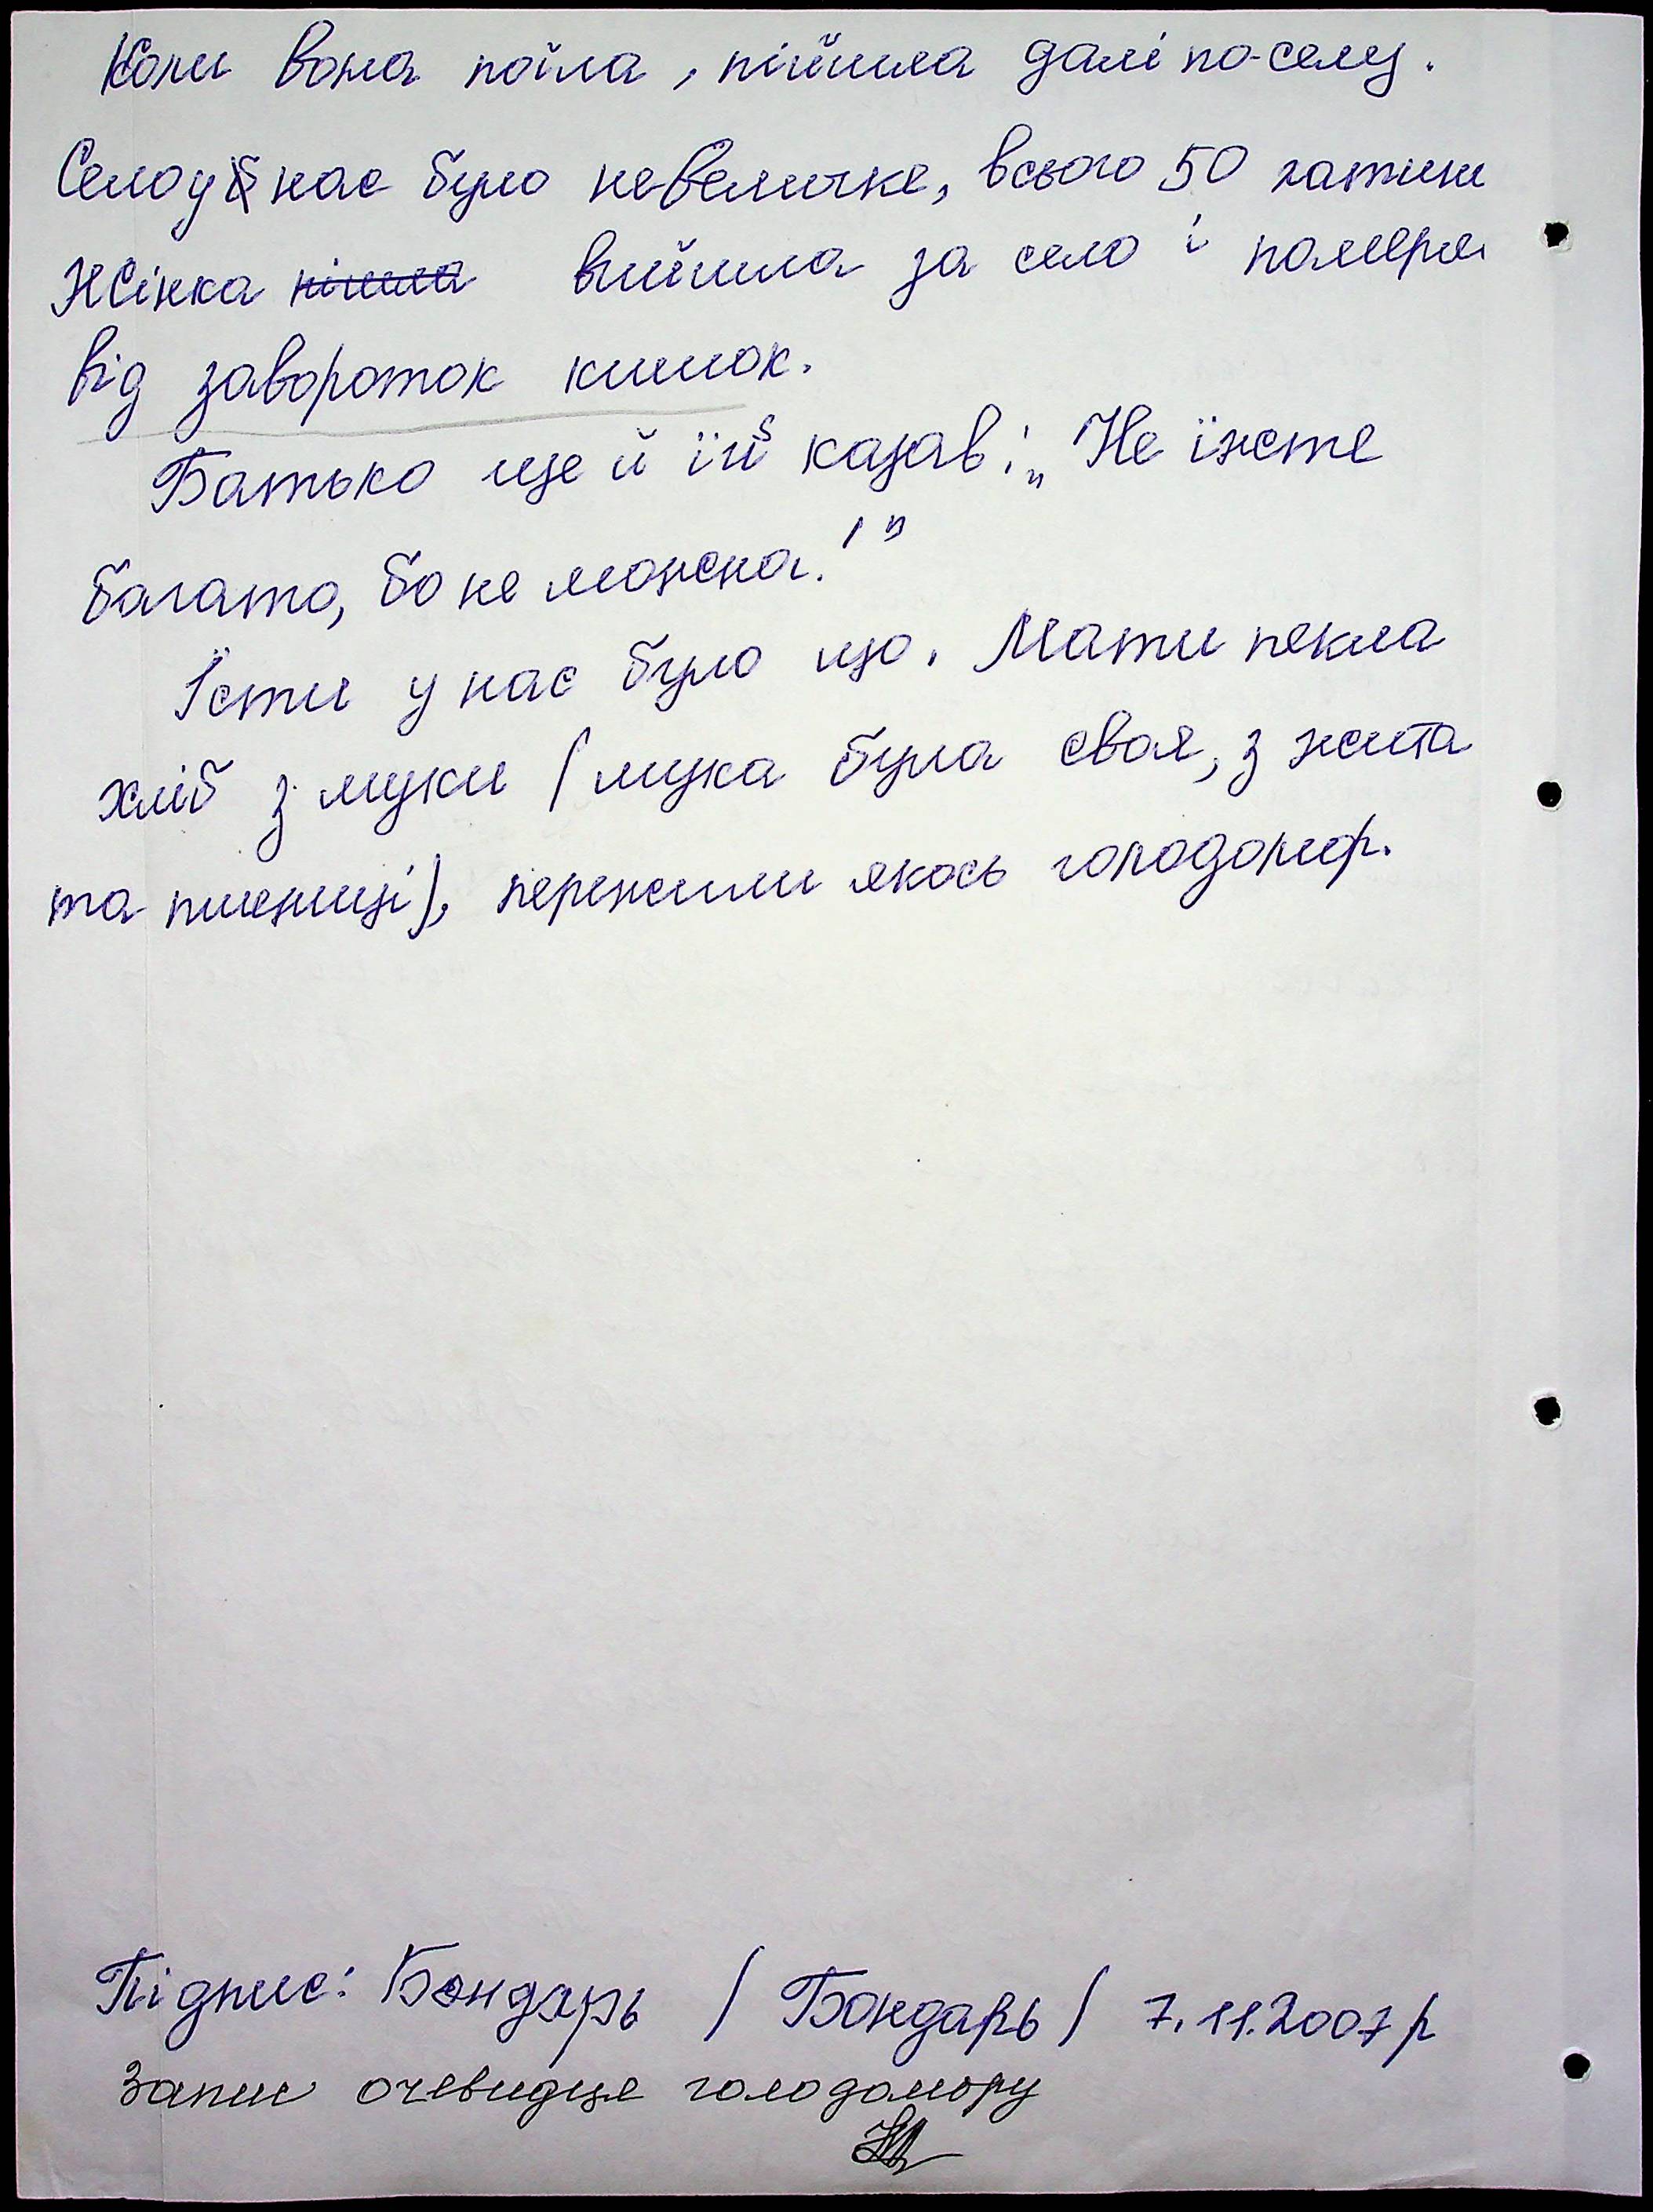 Коли вона поїла, пійшла далі по-селу.
Село у нас було невеличке, всього 50 хатин
Жінка пішла вийшла за село і померла
від завороток кишок.
Батько ще й їй казав: „Не їжте
багато, бо не можна!"
Їсти у нас було що. Мати пекла
хліб з муки (мука була своя, з жита
та пшениці), пережили якось голодомор.
Підпис: Бондарь (Бондарь) 7.11.2007 р
Запис очевидця голодомору